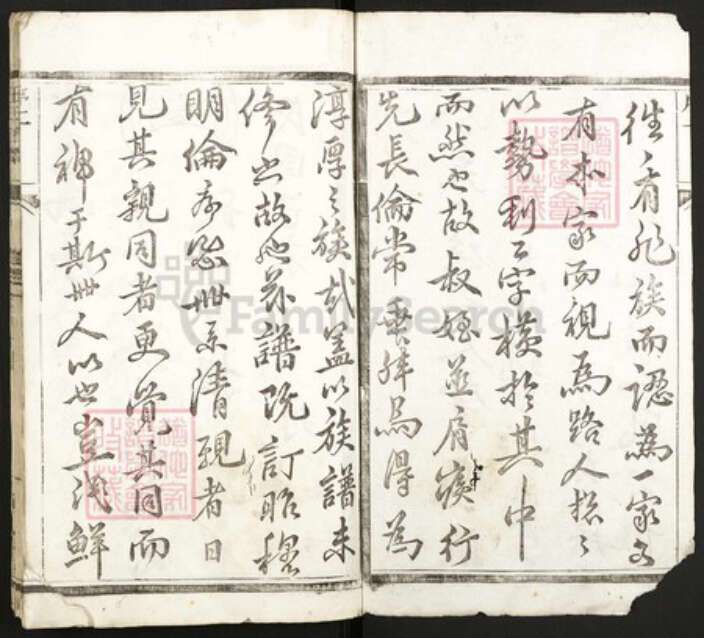 往々有非族而認為一家又
有本家而視為路人揔之
以勢利二字横於其中
而然也故叔姪並肩疾行
先長倫常 得為
淳厚之族哉盖以族譜未
修之故也茲譜既訂昭穆
明倫序 世系清親者日
見其親同者更覺其同而
有裨于斯世人以世豈浅鮮
FamilySearch